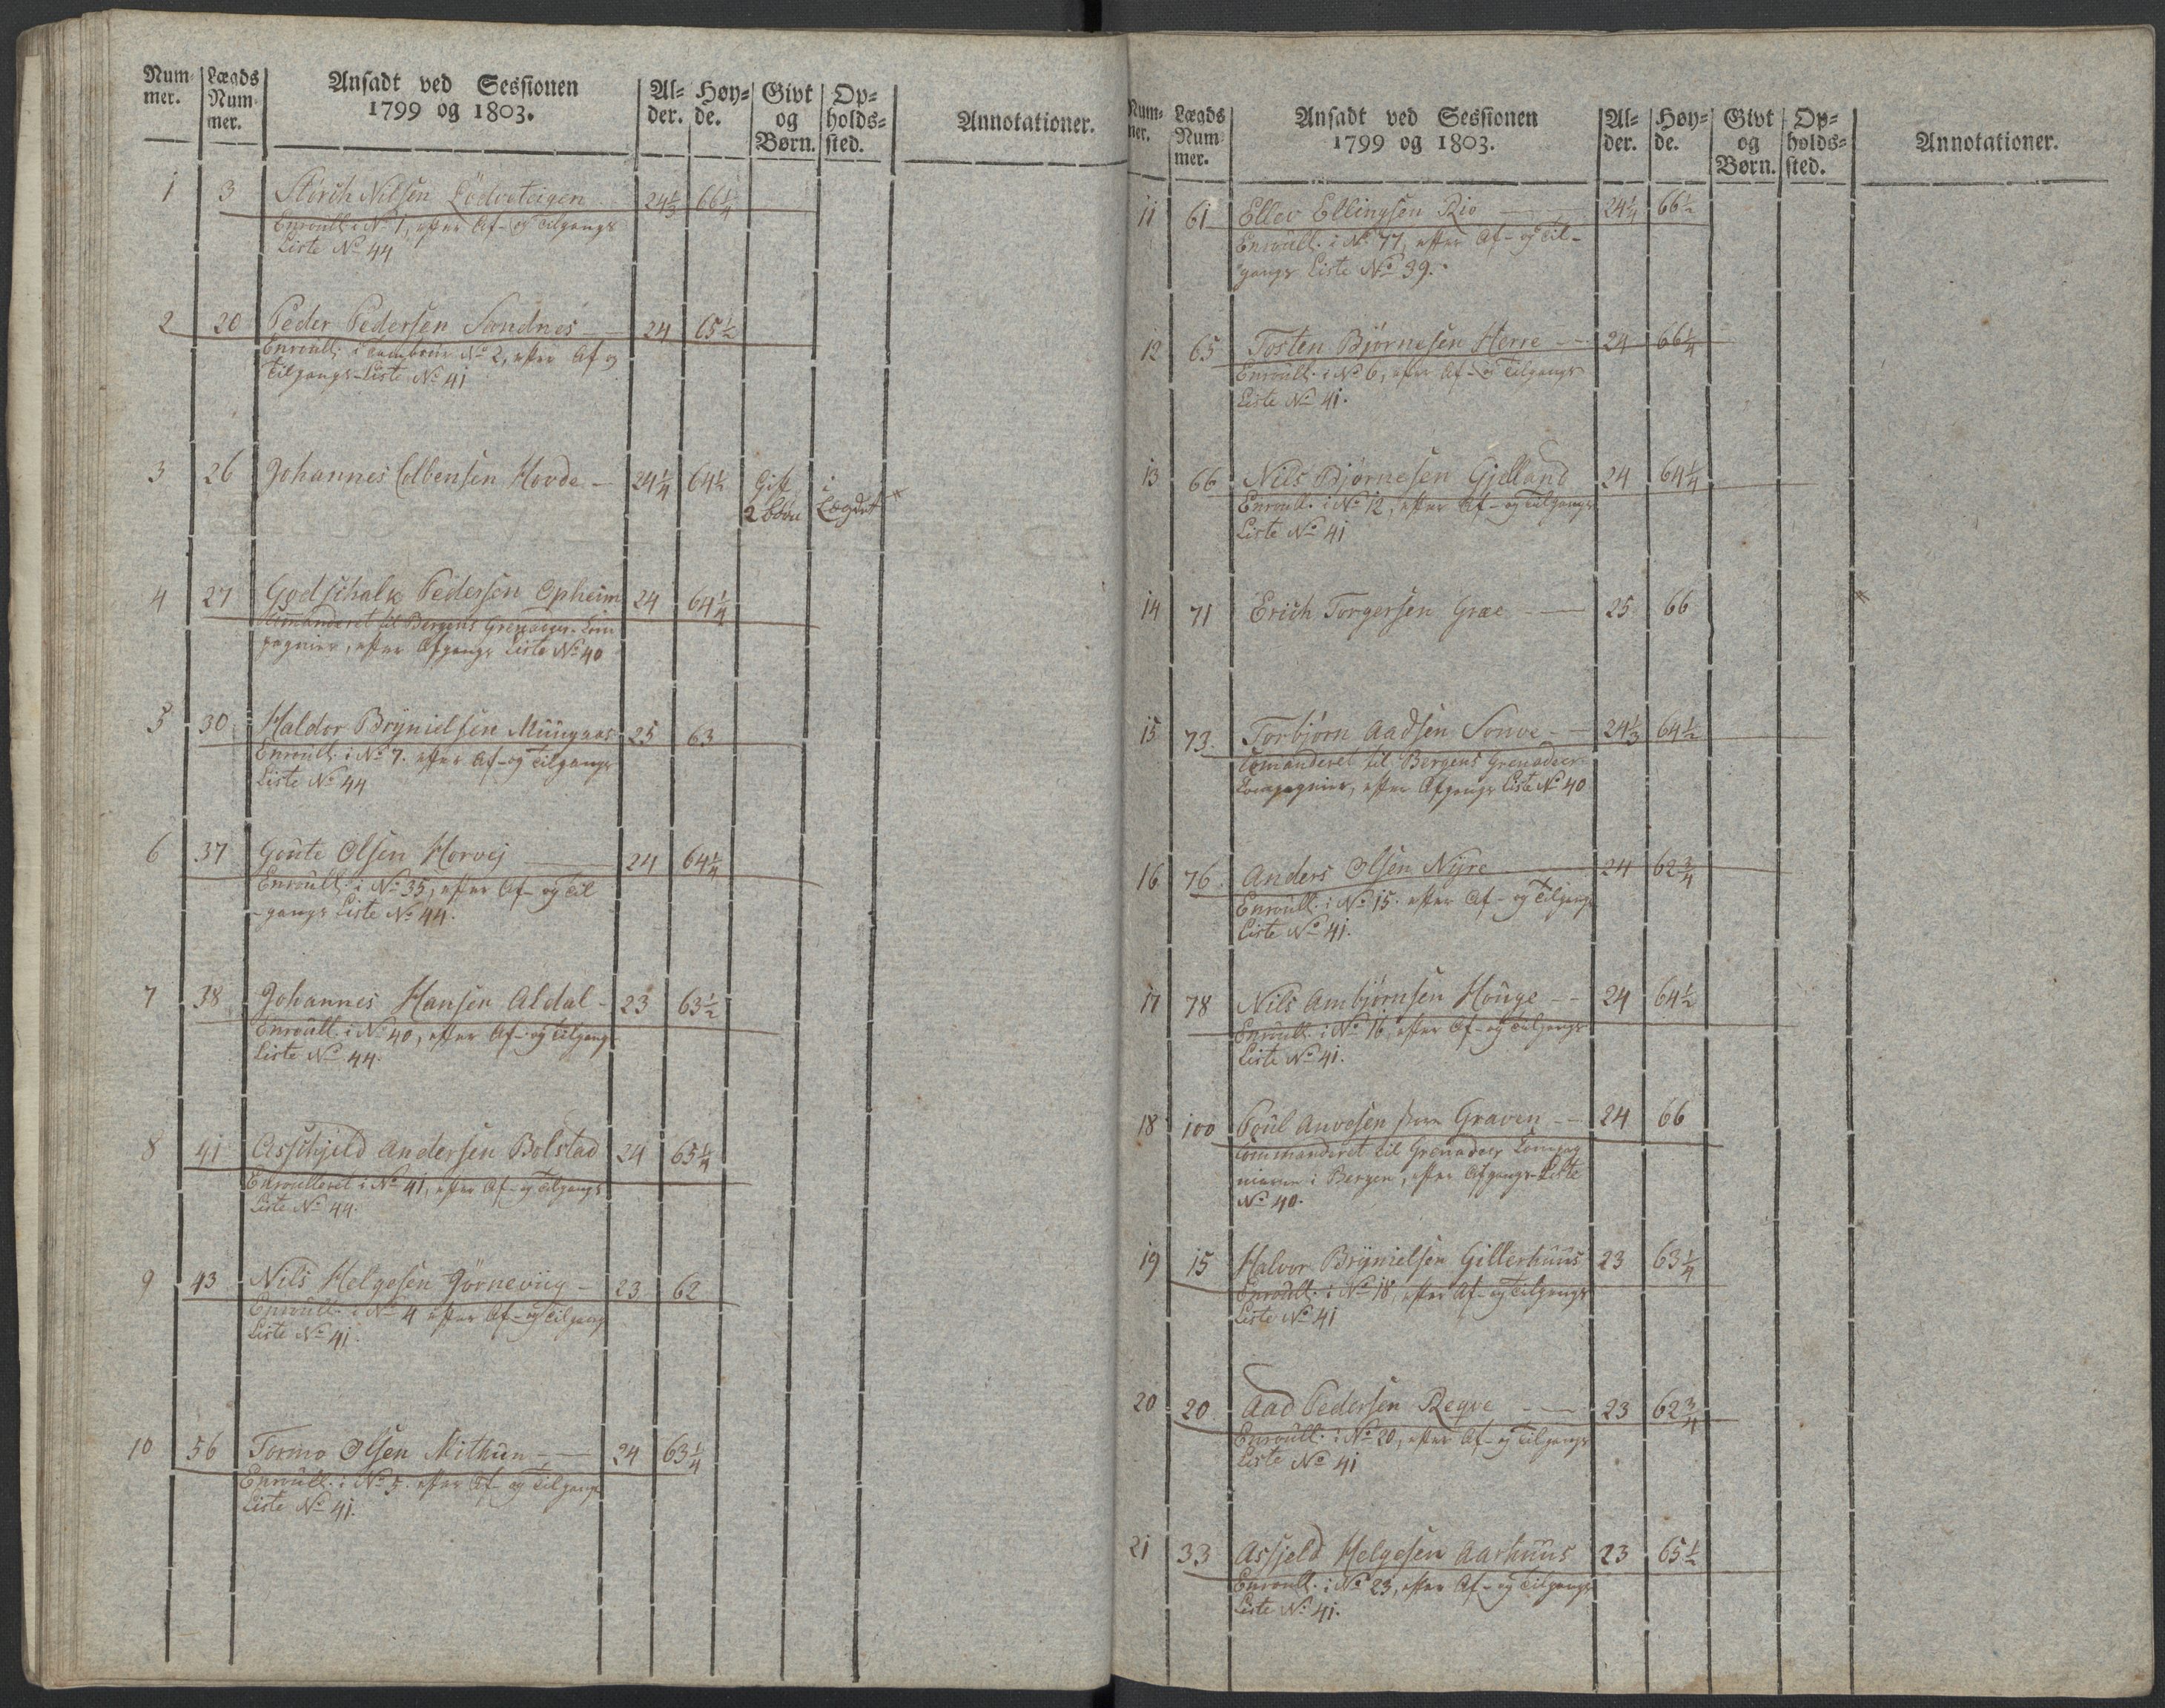 Num- Lægds Ansadt ved Sessionen Al- Høy- Givt Op-
mer. Num- 1799 og 1803. der. de. og holds- Annotationer.
mer. Børn. sted.
1 3 Nilsen 24 1/3 66 1/4
Enroull. i No 1, efter Af- og Tilgangs
Liste No 44
2 20 Peder Pedersen Sandnes 24 65 1/2
Enroull. i Tambour No 2, efter Af og
Tilgangs-Liste No 41
3 26 Johannes Colbensen Hovde 24 1/4 64 1/2 Gift i
2 Børn Lægdet "
4 27 Godschalk Pedersen Opheim 24 64 1/4
Commanderet til Bergens Grenadeer-Com
pagnier, efter Afgangs Liste No 40
5 30 Haldor Brÿnielsen Müügaas 25 63
Enroull. i No 7. efter Af- og Tilgangs
Liste No 44
6 37 Goute Olsen Horvej 24 64 1/4
Enroull. i No 35, efter Af- og Til
-gangs Liste No 44.
7 38 Johannes Hansen Aldal 23 63 1/2
Enroull. i No 40, efter Af- og Tilgangs
Liste No 44.
8 41 Asschjeld Andersen Bolstad 24 65 1/4
Enroulleret i No 41, efter Af- og Tilgangs
Liste No 44.
9 43 Nils Helgesen Jörneviig 23 62
Enroull. i No 4 efter Af- og Tilgangs
Liste No 41.
10 56 Tormo Olsen Mithun 24 63 1/4
Enroull. i No 5. efter Af- og Tilgangs
Liste No 41.
Num- Lægds Ansadt ved Sessionen Al- Høy- Givt Op-
mer. Num- 1799 og 1803. der. de. og holds- Annotationer.
mer. Børn. sted.
11 61 Ellev Ellingsen Rio 24 1/4 66 1/2
Enroull. i No 77, efter Af- og Til-
gangs Liste No 39.
12 65 Tosten Bjørnesen Herre 24 66 1/4
Enroull. i No 6, efter Af- og Tilgangs
Liste No 41.
13 66 Nils Bjørnesen Gjelland 24 64 1/4
Enroull. i No 12, efter Af- og Tilgangs
Liste No 41
14 71 Erich Torgersen Græe 25 66 "
15 73 Torbjørn Aadsen Sonve 24 1/3 64 1/2
Comanderet til Bergens Grenadeer
Compagnier, efter Afgangs Liste No 40
16 76 Anders Olsen Nÿre 24 62 3/4
Enroull. i No 15. efter Af- og Tilgangs
Liste No 41.
17 78 Nils Ambjørnsen Houge 24 64 1/2
Enroull. i No 16, efter Af- og Tilgangs
Liste No 41.
18 100 Poul Anvesen Graven 24 66
Commanderet til Grenadeer Compag
nierne i Bergen, efter Afgangs-Liste
No 40.
19 15 Halvor Brÿnielsen Gillerhuus 23 63 1/4
Enroull. i No 18, efter Af- og Tilgangs
Liste No 41
20 20 Aad Pedersen Reqve 23 62 3/4
Enroull. i No 20, efter Af- og Tilgangs
Liste No 41
21 33 Assjeld Helgesen Aarhuus 23 65 1/2
Enroull. i No 23, efter Af- og Tilgangs
Liste No 41.